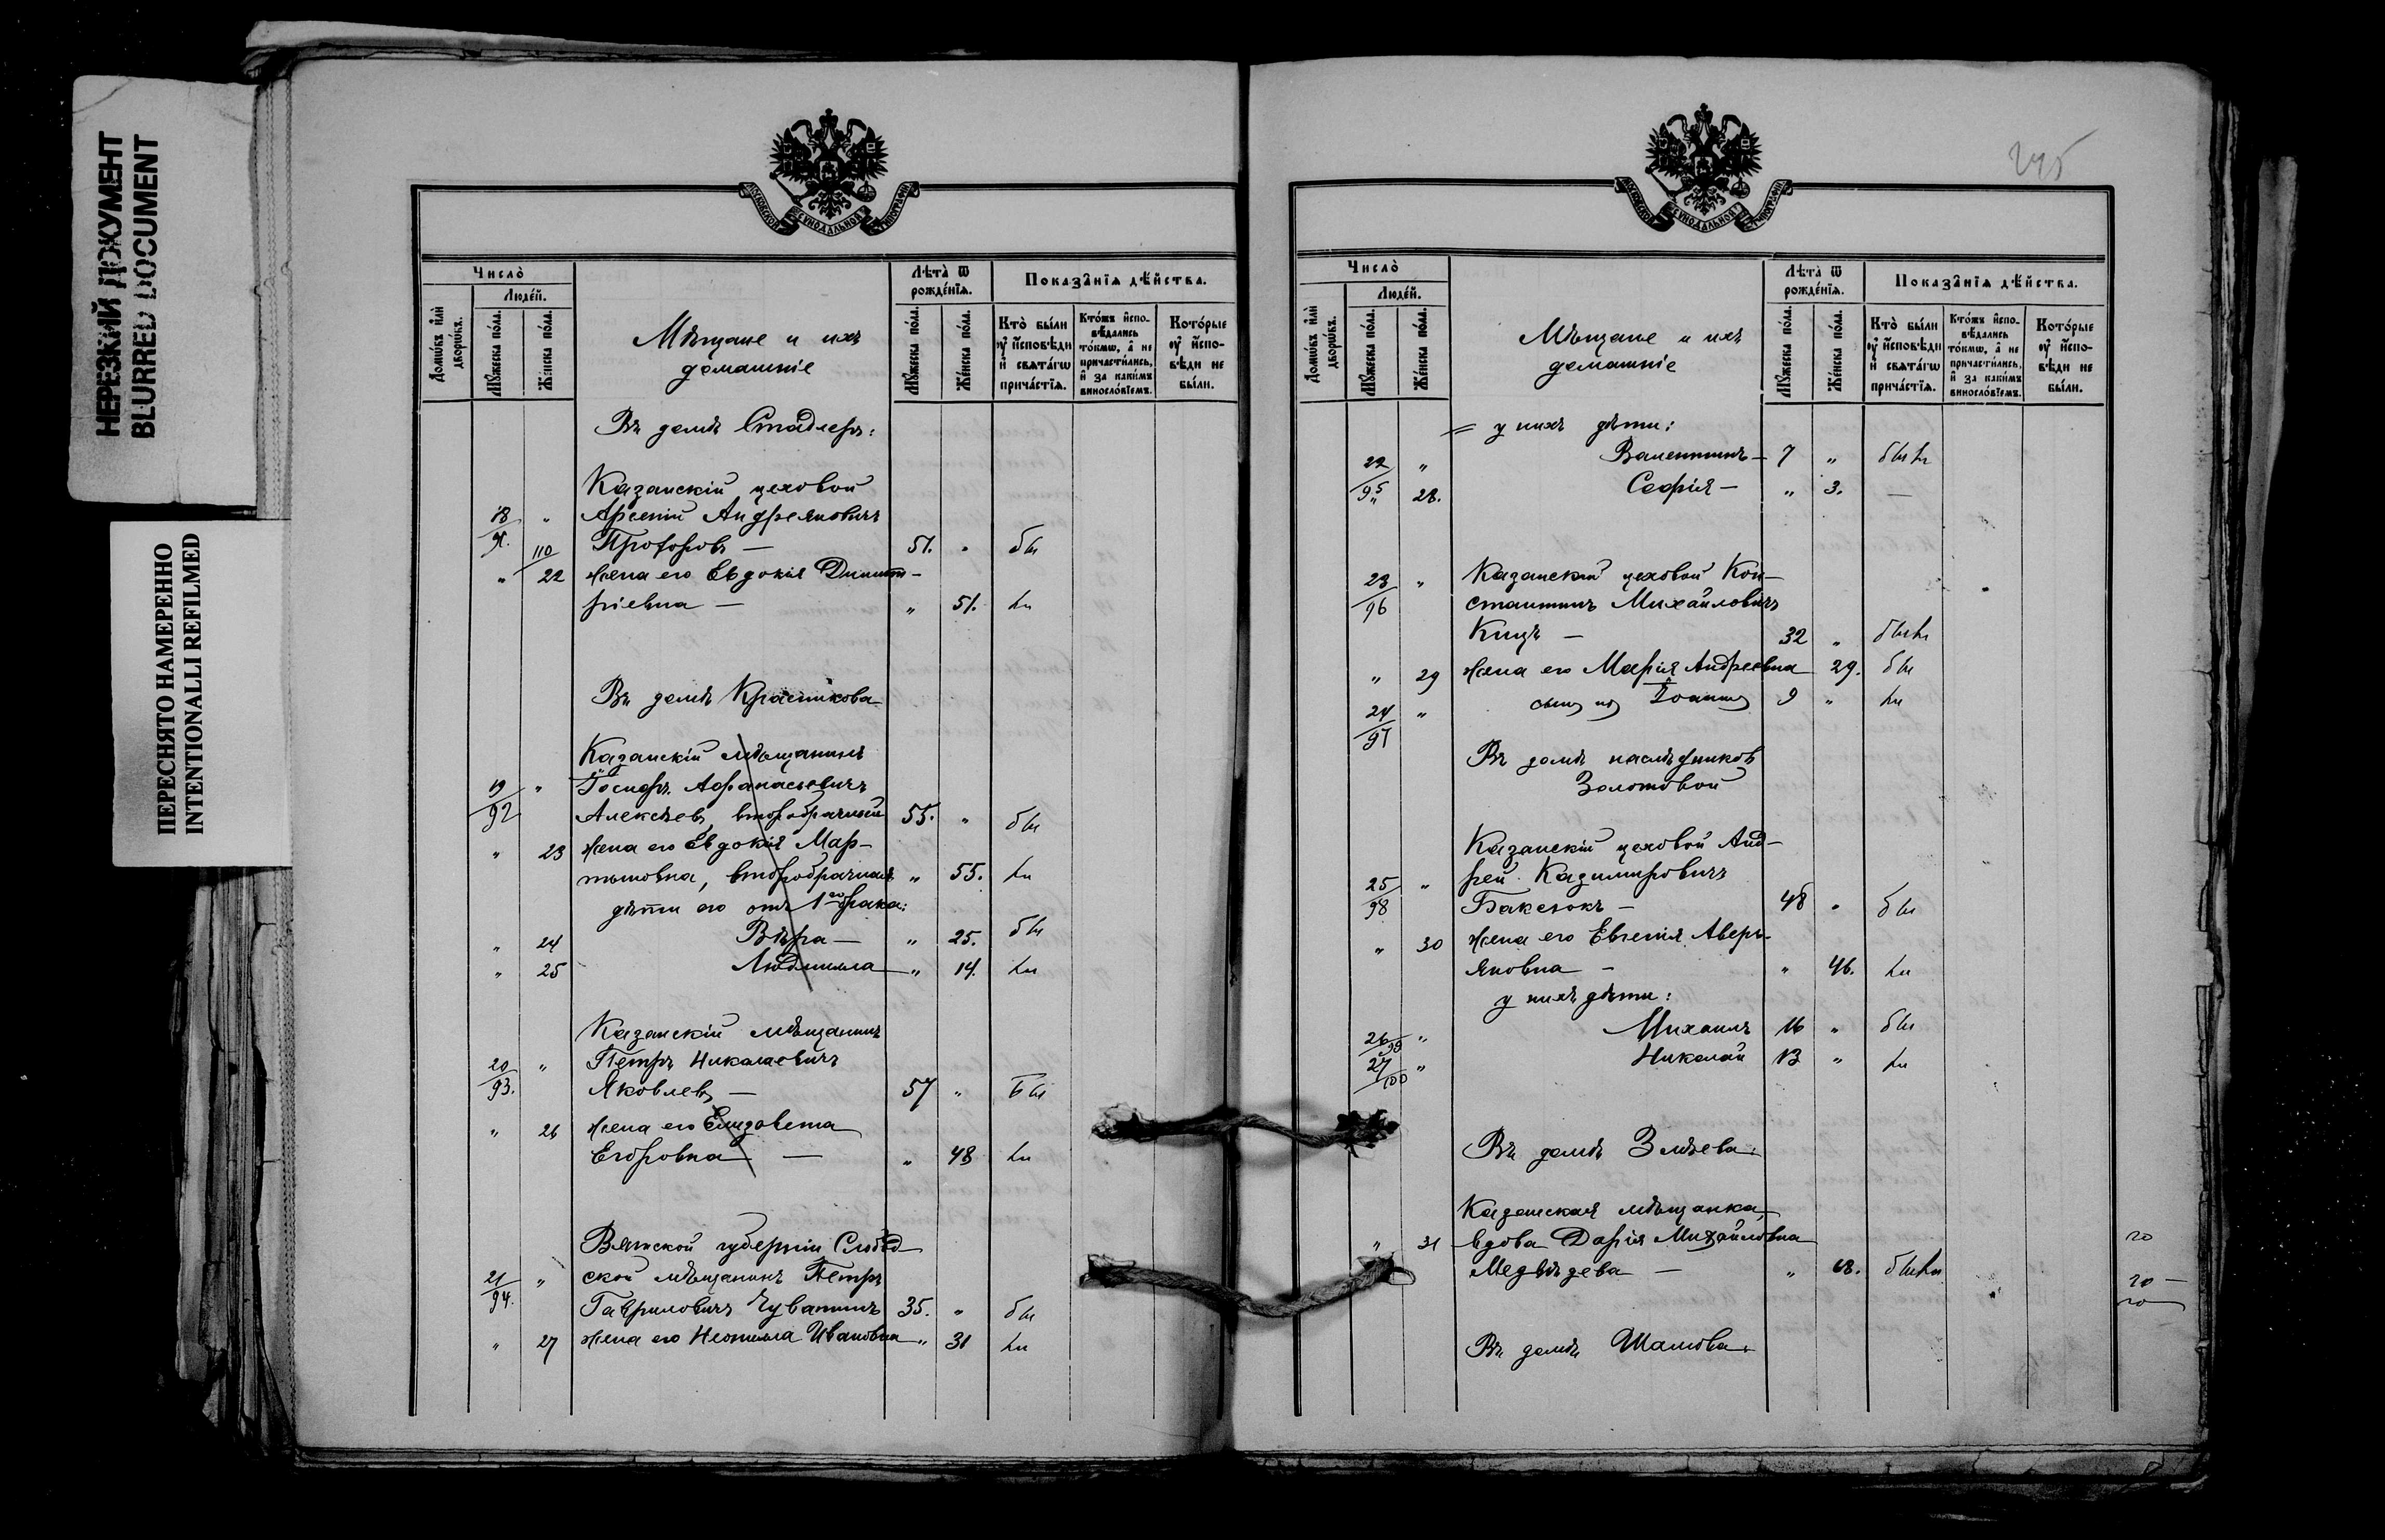 НЕРЕЗКИЙ ДОКУМЕНТ
BLURRED DOCUMENT
ПЕРЕСНЯТО НАМЕРЕННО
INTENTIONALLI REFILMED
МОСКОВСКОЙ СѴНОДАЛЬНОЙ ТИПОГРАФІИ
Число̀
Люде́й.
Домѡ́въ и҆лѝ дворѡ́въ.
Мꙋ́жеска по́ла.
Же́нска по́ла.
Мѣщане и ихъ
домашніе
Лѣта̀ ѿ
рожде́нїѧ.
Мꙋ́жеска по́ла.
Же́нска по́ла.
Показа̑нїѧ дѣ́йства.
Кто̀ бы́ли
оу҆ и҆сповѣ́ди
и҆ свѧта́гѡ
прича́стїѧ.
Кто́жъ и҆спо-
вѣ́дались
то́кмѡ, а҆ не
причасти́лись,
и҆ за каки́мъ
винословїемъ.
Кото́рые
оу҆ и҆спо-
вѣ́ди не
бы́ли.
Въ домѣ Стадлеръ:
Казанскій цеховой
18 „ Арсеній Андреяновичъ
91. 110 Прохоровъ — 51. „ бы
„ 22 Жена его Евдокія Димит-
ріевна — „ 51. ли
Въ домѣ Красникова
Казанскій мѣщанинъ
19 „ Іосифъ Афанасьевичъ
92 Алексѣевъ, второбрачный 55. „ бы
„ 23 Жена его Евдокія Мар-
тыновна, второбрачная „ 55. ли
дѣти его отъ 1го брака:
„ 24 Вѣра — „ 25. бы
„ 25 Людмилла — „ 14. ли
Казанскій мѣщанинъ
20 „ Петръ Николаевичъ
93. Яковлевъ — 57 „ бы
„ 26 Жена его Елизавета
Егоровна — „ 48 ли
Вятской губерніи Слобод-
21 „ ской мѣщанинъ Петръ
94. Гавриловичъ Чуванинъ 35. „ бы
„ 27 Жена его Неонилла Ивановна „ 31 ли
245
МОСКОВСКОЙ СѴНОДАЛЬНОЙ ТИПОГРАФІИ
Число̀
Люде́й.
Домѡ́въ и҆лѝ дворѡ́въ.
Мꙋ́жеска по́ла.
Же́нска по́ла.
Мѣщане и ихъ
домашніе
Лѣта̀ ѿ
рожде́нїѧ.
Мꙋ́жеска по́ла.
Же́нска по́ла.
Показа̑нїѧ дѣ́йства.
Кто̀ бы́ли
оу҆ и҆сповѣ́ди
и҆ свѧта́гѡ
прича́стїѧ.
Кто́жъ и҆спо-
вѣ́дались
то́кмѡ, а҆ не
причасти́лись,
и҆ за каки́мъ
винословїемъ.
Кото́рые
оу҆ и҆спо-
вѣ́ди не
бы́ли.
= у нихъ дѣти:
22 „ Валентинъ — 7 „ былъ
95 „ 28. Софія — „ 3. —
23 „ Казанскій цеховой Кон-
96 стантинъ Михайловичъ
Кицъ — 32 „ былъ
„ 29 Жена его Марія Андреевна 29. бы
24 „ сынъ ихъ Іоаннъ 9 „ ли
97
Въ домѣ наслѣдниковъ
Золотовой
Казанскій цеховой Анд-
25 „ рей Казимировичъ
98 Баксюкъ — 48 „ бы
„ 30 Жена его Евгенія Аверь-
яновна — „ 46. ли
у нихъ дѣти:
26 99 „ Михаилъ 16 „ бы
27 100 „ Николай 13 „ ли
Въ домѣ Змѣева:
Казанская мѣщанка,
„ 31 вдова Дарія Михайловна
Медвѣдева — „ 68. были
Въ домѣ Шамова:
20
20 —
20